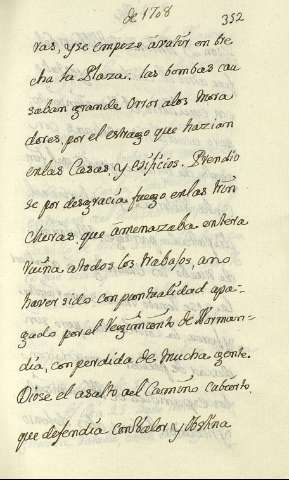 de 1708
352
ras, y se empezo â vatir en bre
cha la Plaza. las bombas cau
saban grande orror alos mora
dores, por el estrago que hazian
enlas Casas y edificios. Prendio
se por desgracia fuego enlas trin
cheras que âmenazaba entera
ruina atodos los trabajos, ano
haver sido con puntualidad apa-
gado por el Regimiento de Norman=
dia, con perdida de mucha gente.
Diose el asalto ael Camino cubierto
que defendia con Valor y obstina